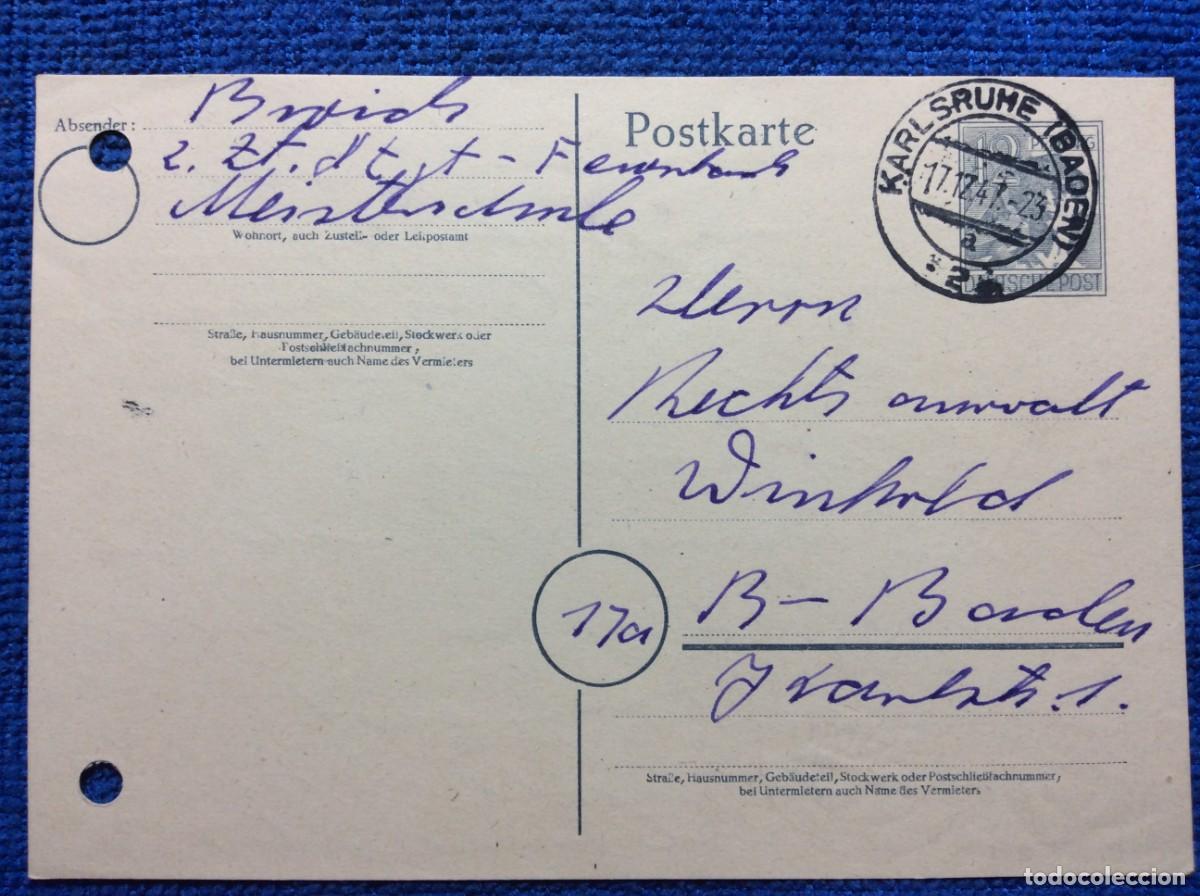 Absender:
2. Zt.
Meisterschule
Wohnort, auch Zustell- oder Leitpostamt
Straße, Hausnummer, Gebäudeteil, Stockwerk oder
Postschließfachnummer;
bei Untermietern auch Name des Vermieters
Postkarte
12 PFENNIG
DEUTSCHE POST
KARLSRUHE (BADEN)
17.12.47.-23
a
* 2 *
Herrn
Rechtsanwalt
17a
B- Baden
1.
Straße, Hausnummer, Gebäudeteil, Stockwerk oder Postschließfachnummer;
bei Untermietern auch Name des Vermieters
todocoleccion